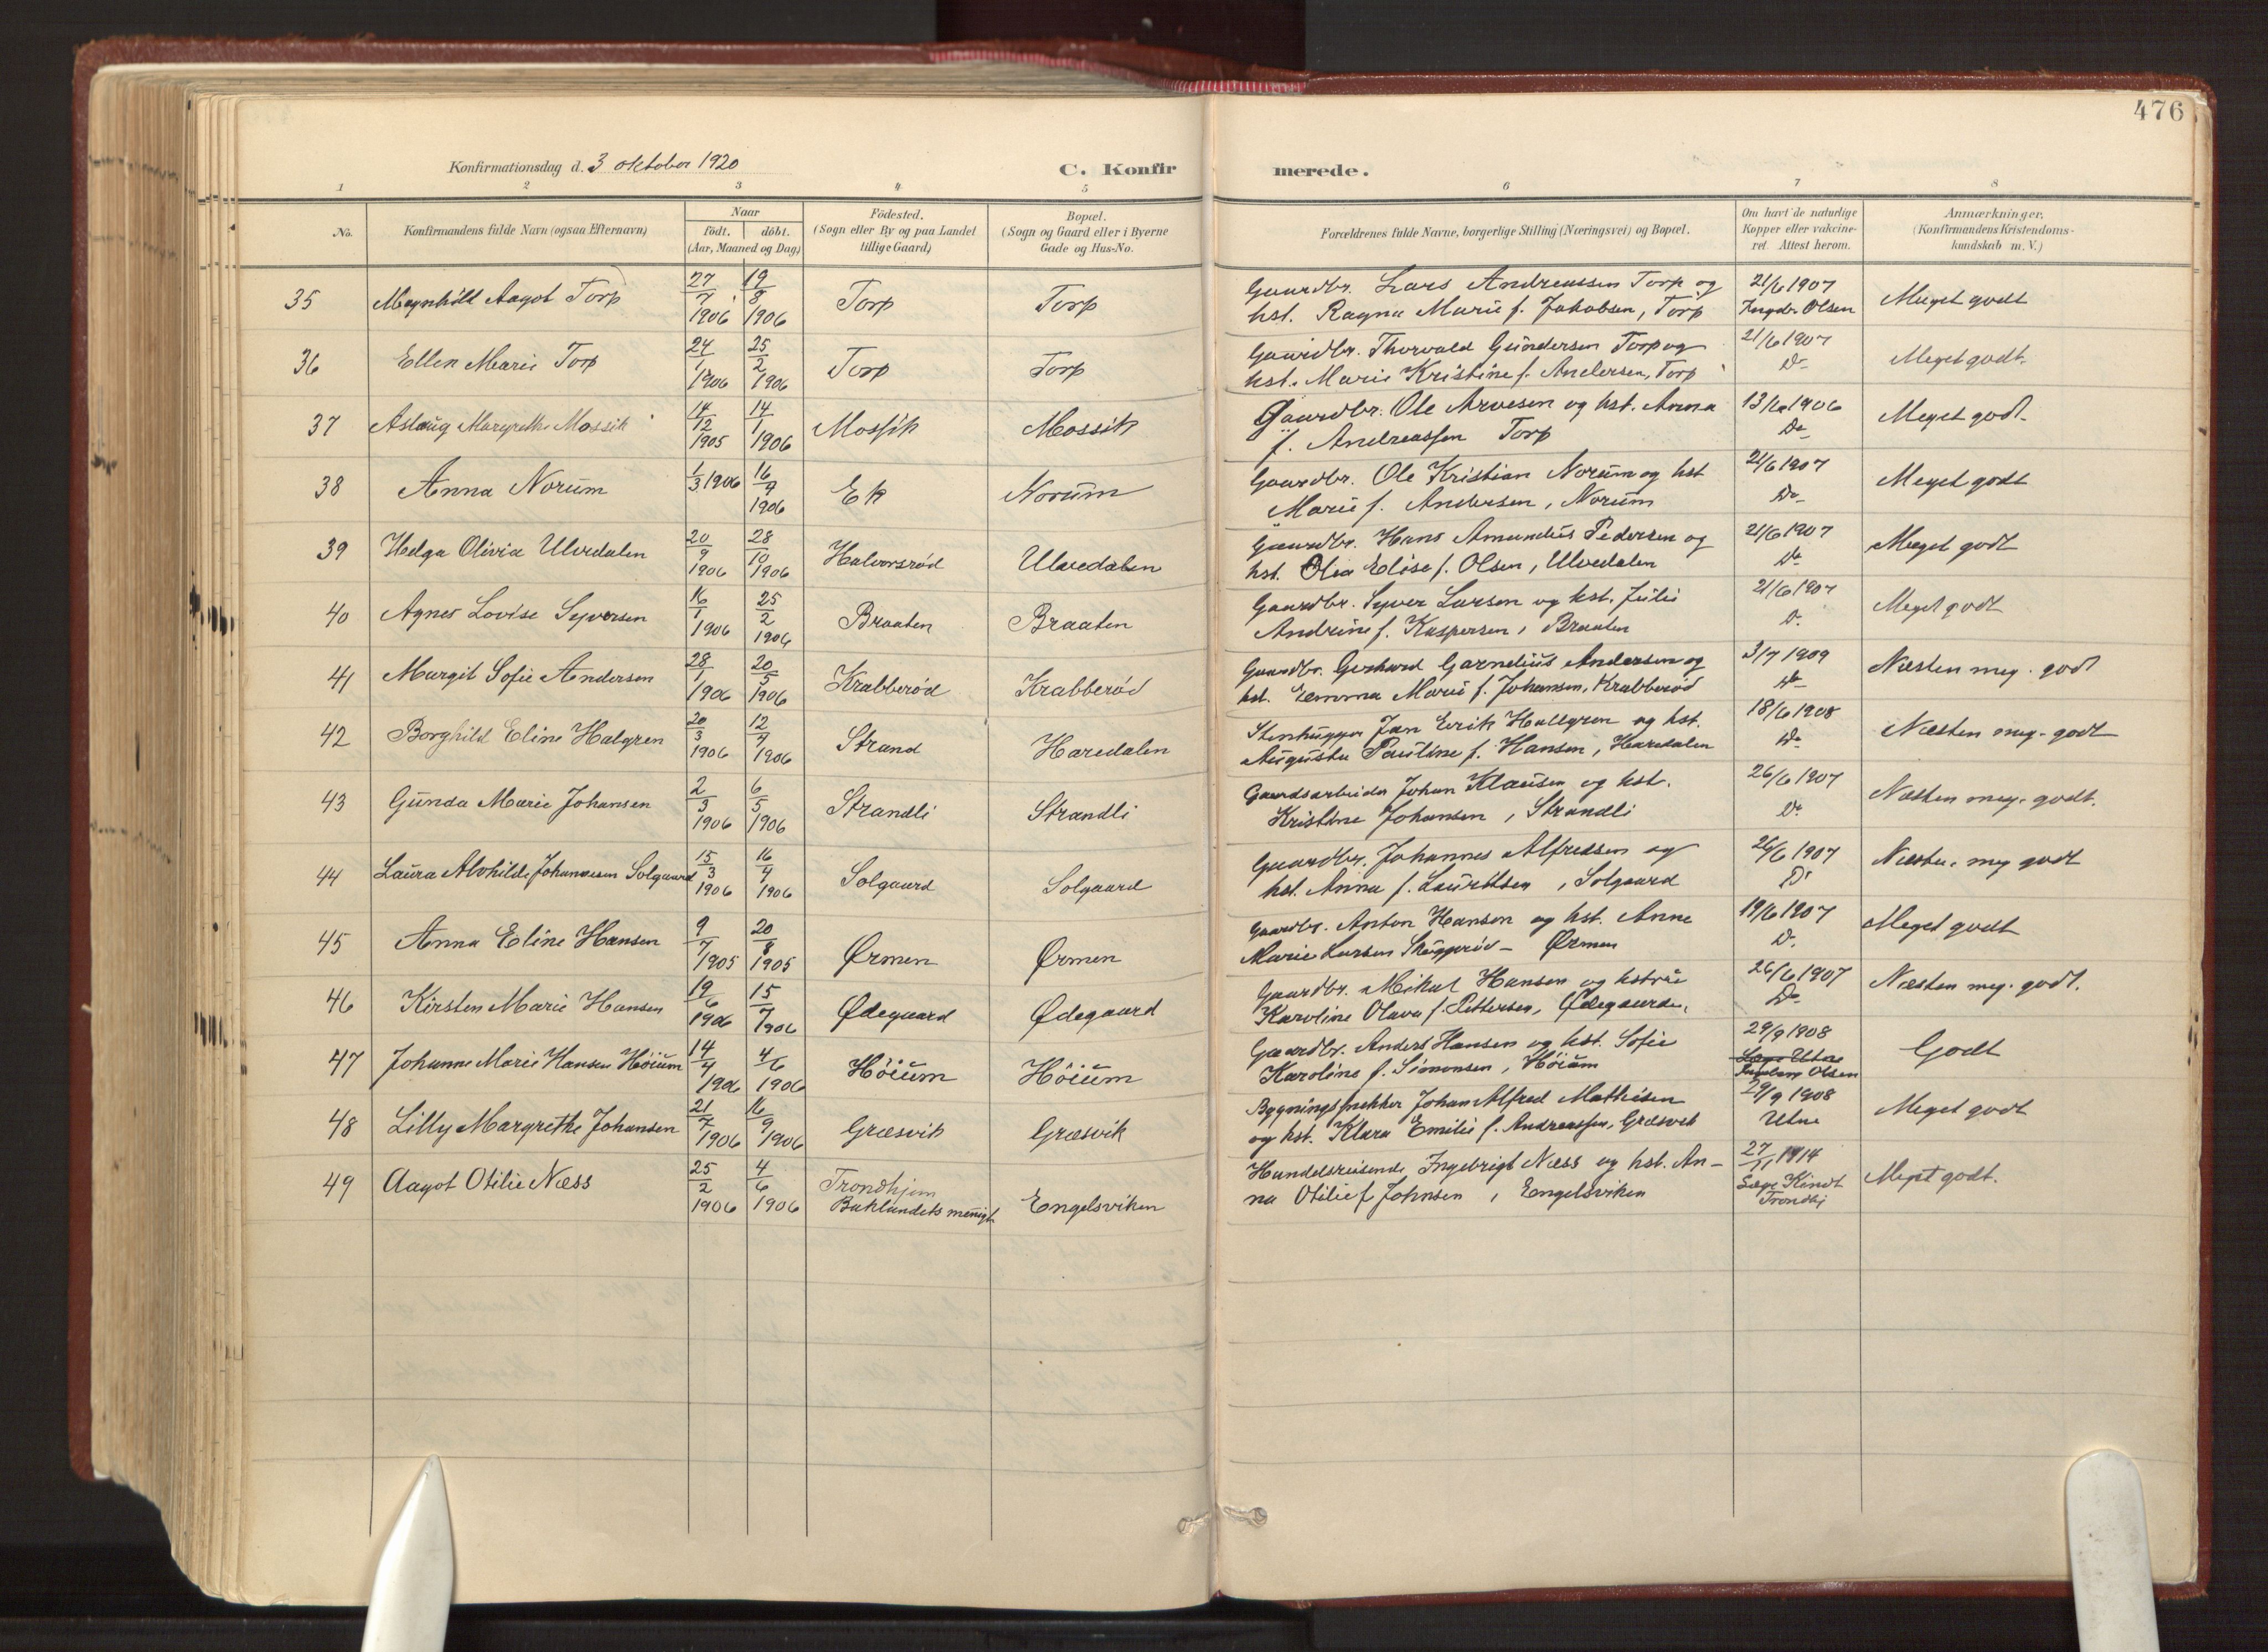 476
Konfirmationsdag d. 3 oktober 1920
C. Konfirmerede.
1 2 3 4 5 6 7 8
No.
Konfirmandens fulde Navn (ogsaa Efternavn)
Naar
födt. döbt.
(Aar, Maaned og Dag)
Födested.
(Sogn eller By og paa Landet
tillige Gaard)
Bopæl.
(Sogn og Gaard eller i Byerne
Gade og Hus-No.
Forældrenes fulde Navne, borgerlige Stilling (Næringsvei) og Bopæl.
Om havt de naturlige
Kopper eller vakcine-
ret Attest herom.
Anmærkninger.
(Konfirmandens Kristendoms-
kundskab m. V.)
35 Magnhild Aagot Torp 27/7 1906 19/8 1906 Torp Torp
Gaardbr. Lars Andreassen Torp og
hst. Ragna Marie f. Jakobsen, Torp
21/6 1907
Ingebr. Olsen
Meget godt
36 Ellen Marie Torp 24/1 1906 25/2 1906 Torp Torp
Gaardbr. Thorvald Gundersen Torp og
hst. Marie Kristine f. Andersen, Torp
21/6 1907
Do
Meget godt.
37 Aslaug Margrethe Mossik 14/12 1905 14/1 1906 Mossik Mossik
Gaardbr. Ole Arvesen og hst. Anna
f. Andreassen Torp
13/6 1906
Do
Meget godt.
38 Anna Norum 1/3 1906 16/9 1906 Ek Norum
Gaardbr. Ole Kristian Norum og hst
Marie f. Andersen, Norum
21/6 1907
Do
Meget godt
39 Helga Olivia Ulvedalen 20/9 1906 28/10 1906 Halvorsrød Ulvedalen
Gaardbr. Hans Amundius Pedersen og
hst. Olea Elise f. Olsen, Ulvedalen
21/6 1907
Do
Meget godt
40 Agnes Lovise Syversen 16/1 1906 25/2 1906 Braaten Braaten
Gaardbr. Syver Larsen og hst. Julie
Andrine f. Kaspersen, Braaten
21/6 1907
D.
Meget godt
41 Margit Sofie Andersen 28/1 1906 20/5 1906 Krabberød Krabberød
Gaardbr. Gerhard Garnelius Andersen og
hst. Emma Marie f. Johansen, Krabberød
3/7 1909
Do
Næsten meg. godt
42 Borghild Eline Halgren 20/3 1906 12/7 1906 Strand Haredalen
Stenhugger Jan Erik Hallgren og hst.
Augusta Pauline f. Hansen, Haredalen
18/6 1908
Do
Næsten meg. godt
43 Gunda Marie Johansen 2/3 1906 6/5 1906 Strandli Strandli
Gaardsarbeider Johan Klausen og hst.
Kristine Johansen, Strandli
26/6 1907
Do
Næsten meg. godt.
44 Laura Alvhilde Johannesen Solgaard 15/3 1906 16/4 1906 Solgaard Solgaard
Gaardbr. Johannes Alfredsen og
hst. Anna f. Lauritsen, Solgaard
26/6 1907
Do
Næsten meg godt
45 Anna Eline Hansen 9/7 1905 20/8 1905 Ørmen Ørmen
Gaardbr. Anton Hansen og hst. Anne
Marie Larsen Skjggerød - Ørmen
19/6 1907
D.
Meget godt
46 Kirsten Marie Hansen 19/6 1906 15/7 1906 Ødegaard Ødegaard
Gaardbr. Mikal Hansen og hstru
Karoline Olava f. Pettersen, Ødegaarden,
26/6 1907
Do
Næsten meg. godt.
47 Johanne Marie Hansen Höium 14/4 1906 4/6 1906 Höium Höium
Gaardbr. Anders Hansen og hst. Sofie
Karoline f. Simonsen, Höium
29/9 1908
Læge Utne
Ingebr. Olsen
Godt
48 Lilly Margrethe Johansen 21/7 1906 16/9 1906 Græsvik Græsvik
Bygningssnekker Johan Alfred Mathisen
og hst. Klara Emilie f. Andreassen, Græsvik
29/9 1908
Utne
Meget godt
49 Aagot Otilie Næss 25/2 1906 4/6 1906 Trondhjem
Baklandets menigh Engelsviken
Handelsreisende Ingebrigt Næss og hst. An-
na Otilie f Johnsen, Engelsviken
27/11 1914
Læge Kindt
Trondhj
Meget godt.